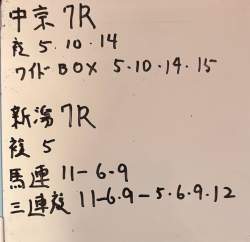 中京7R
複 5・10・14
ワイドBOX 5・10・14・15
新潟7R
複 5
馬連 11-6・9
三連複 11-6.9-5.6.9.12